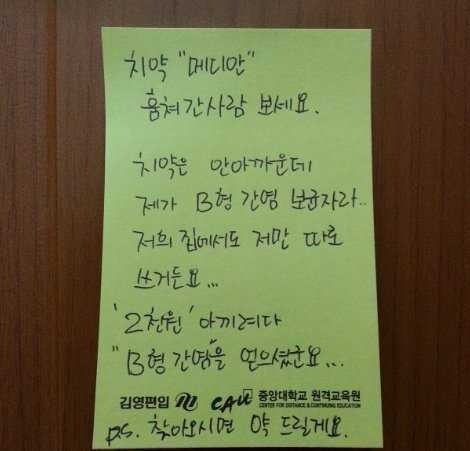 치약 "메디안"
훔쳐간사람 보세요.
치약은 안아까운데
제가 B형 간염 보균자라..
저희 집에서도 저만 따로
쓰거든요...
'2천원' 아끼려다
"B형 간염"을 얻으셨군요...
김영편입 CAU 중앙대학교 원격교육원
CENTER FOR DISTANCE & CONTINUING EDUCATION
P.S. 찾아오시면 약 드릴게요.